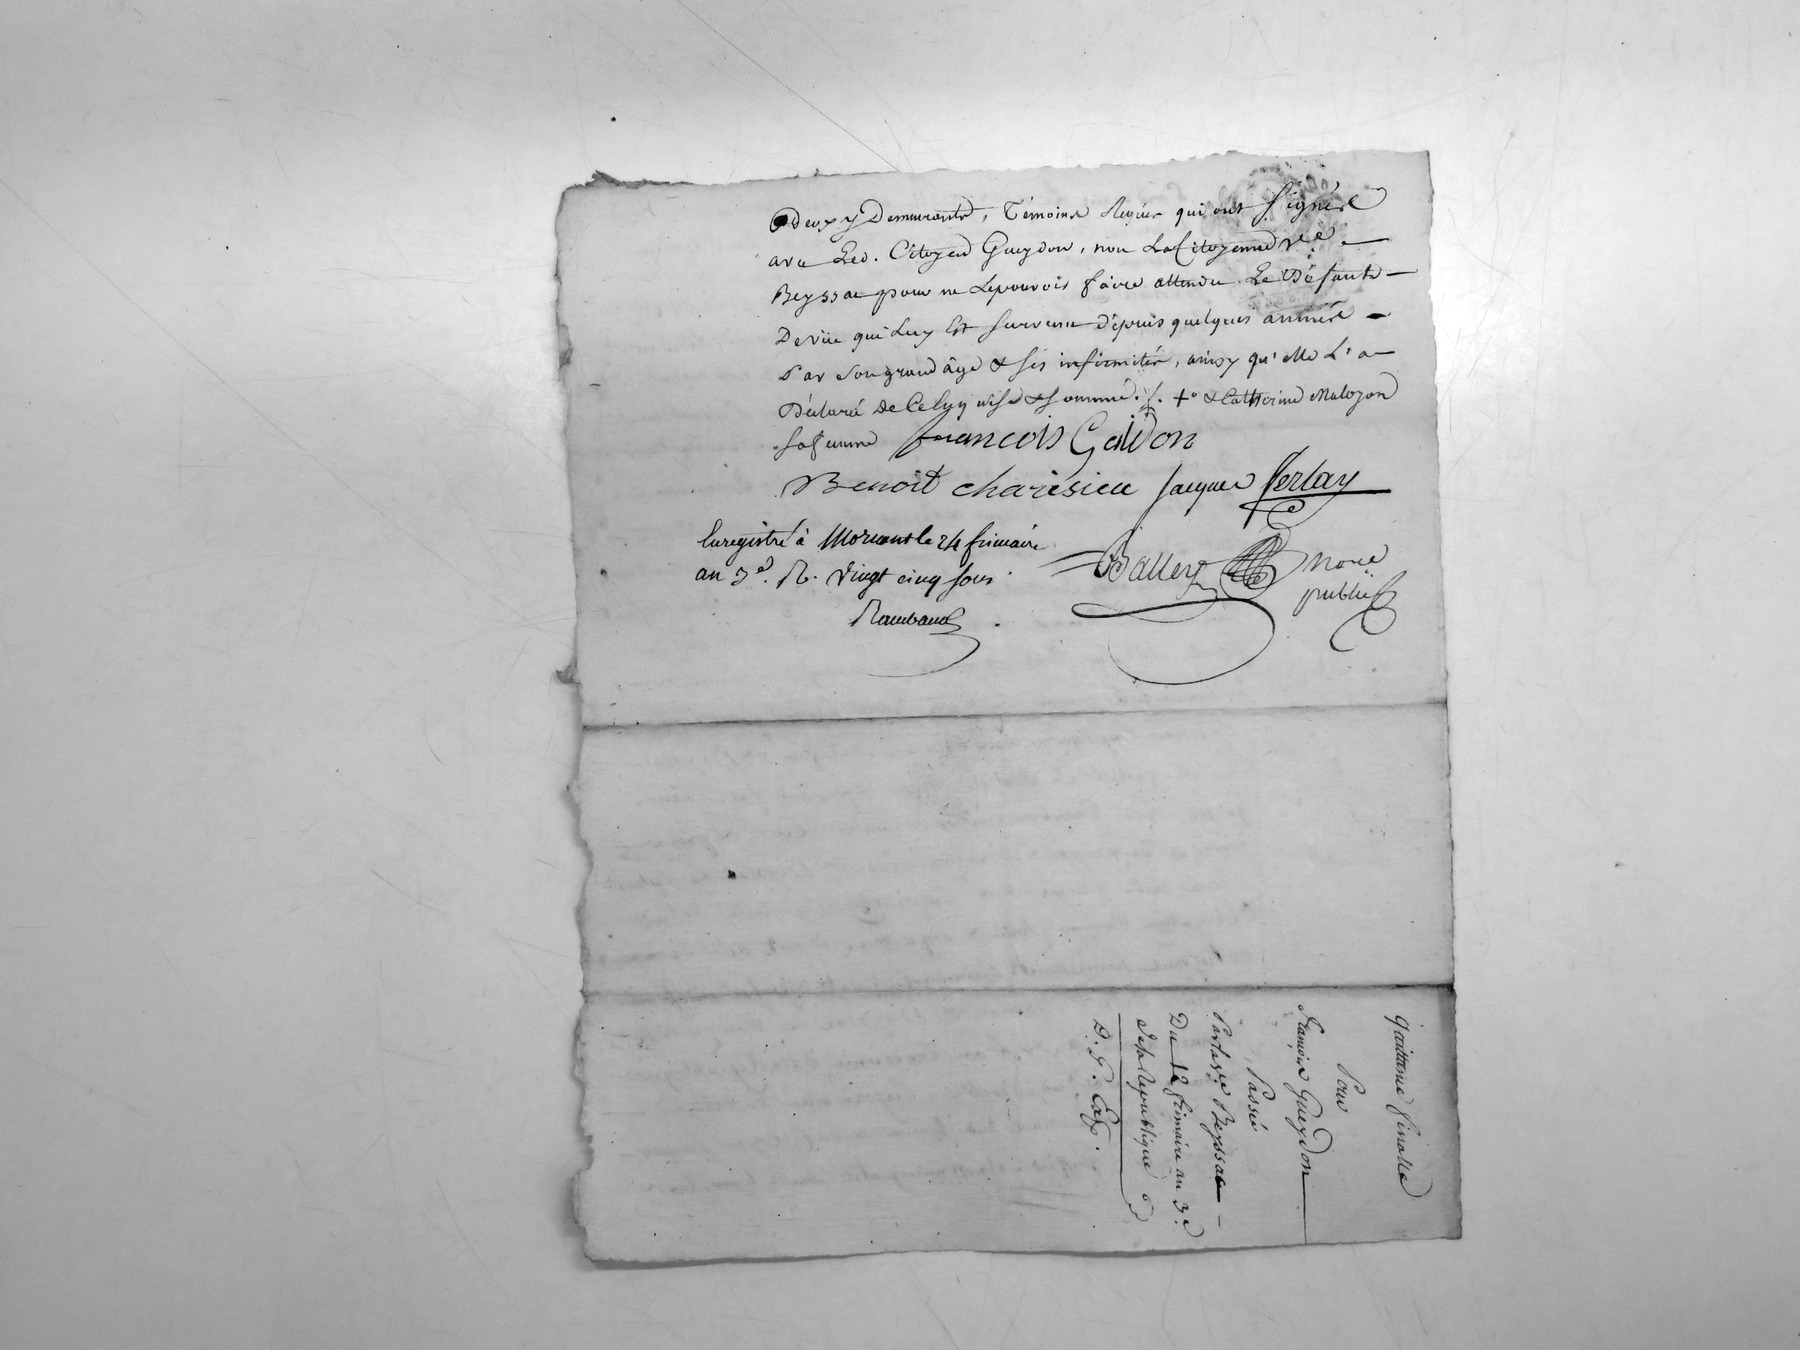 deux y Demeurants, Témoins Requis qui ont Signés
avec Led. Citoyen Gueydon, non La Citoyenne Ve. —
Beyssac pour ne Lepouvoir faire attendu Le Défaut —
De vüe qui Luy Est survenu Dépuis quelques années —
Par son grand âge & ses infirmités, ainsy qu'elle L'a
Déclaré de Ce enquise & sommée. /. +° & Catherine Malozon
sa femme françois GaiDon
Benoit charésieu Jacques ferlay
Enregistré à Mornant le 24 frimaire
an 3e. R. vingt cinq sous
Rambaud
Ballery nore
public
quittance finalle
Pour
françois Gueydon
Passée
Par la ve Beyssac —
Du 12 frimaire an 3e
de la Republique
D. P. Exp.